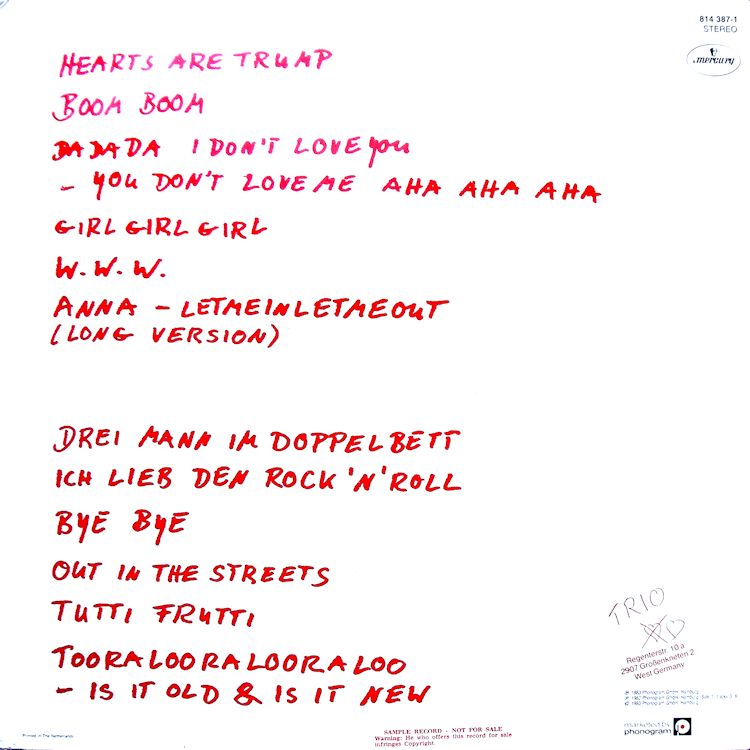 814 387-1
STEREO
mercury
HEARTS ARE TRUMP
BOOM BOOM
DA DA DA I DON'T LOVE YOU
- YOU DON'T LOVE ME AHA AHA AHA
GIRL GIRL GIRL
W. W. W.
ANNA - LETMEINLETMEOUT
(LONG VERSION)
DREI MANN IM DOPPELBETT
ICH LIEB DEN ROCK 'N' ROLL
BYE BYE
OUT IN THE STREETS
TUTTI FRUTTI
TOORALOORALOORALOO
- IS IT OLD & IS IT NEW
TRIO
Regenterstr. 10 a
2907 Großenkneten 2
West Germany
℗ 1983 Phonogram GmbH, Hamburg
℗ 1982 Phonogram GmbH, Hamburg
© 1983 Phonogram GmbH, Hamburg
marketed by
phonogram
Printed in The Netherlands
SAMPLE RECORD - NOT FOR SALE
Warning: He who offers this record for sale
infringes Copyright.